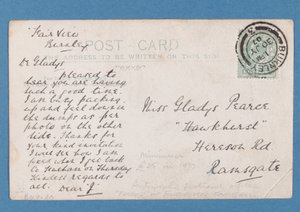 "Fair View
Burnley
POST - CARD
ADDRESS TO BE WRITTEN ON THIS SIDE
BURNLEY
Dr Gladys
pleased to
hear you are having
such a good time.
I am busy packing
up and feel down in
the dumps as per
photo on the other
side. Thanks for
your kind invitation
I will see how I am
fixed when I get back
to Haulham on Thursday
Kindest regards to
all. Dear "J"
Miss Gladys Pearce
"Hawkhurst"
Hereson Rd
Ramsgate